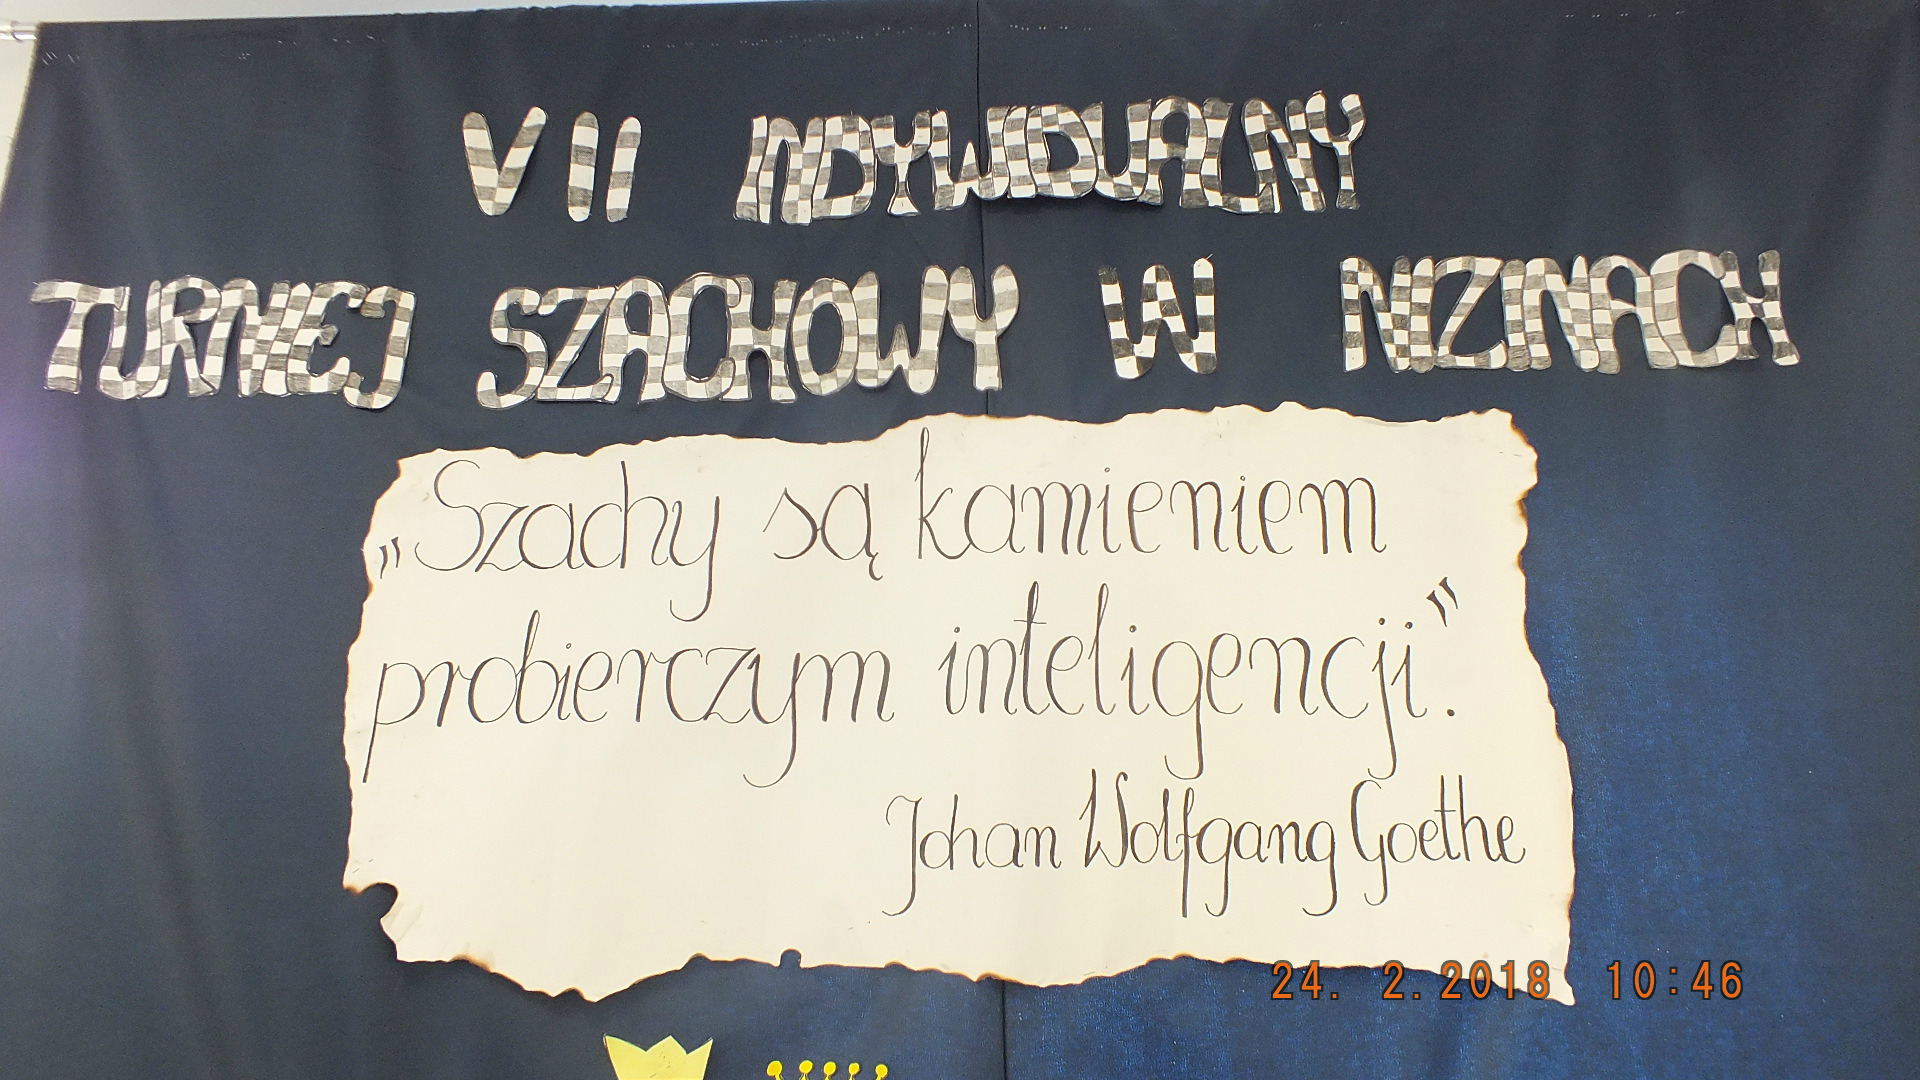 VII INDYWIDUALNY
TURNIEJ SZACHOWY W NIZINACH
„Szachy są kamieniem
probierczym inteligencji”.
Johan Wolfgang Goethe
24. 2.2018 10:46